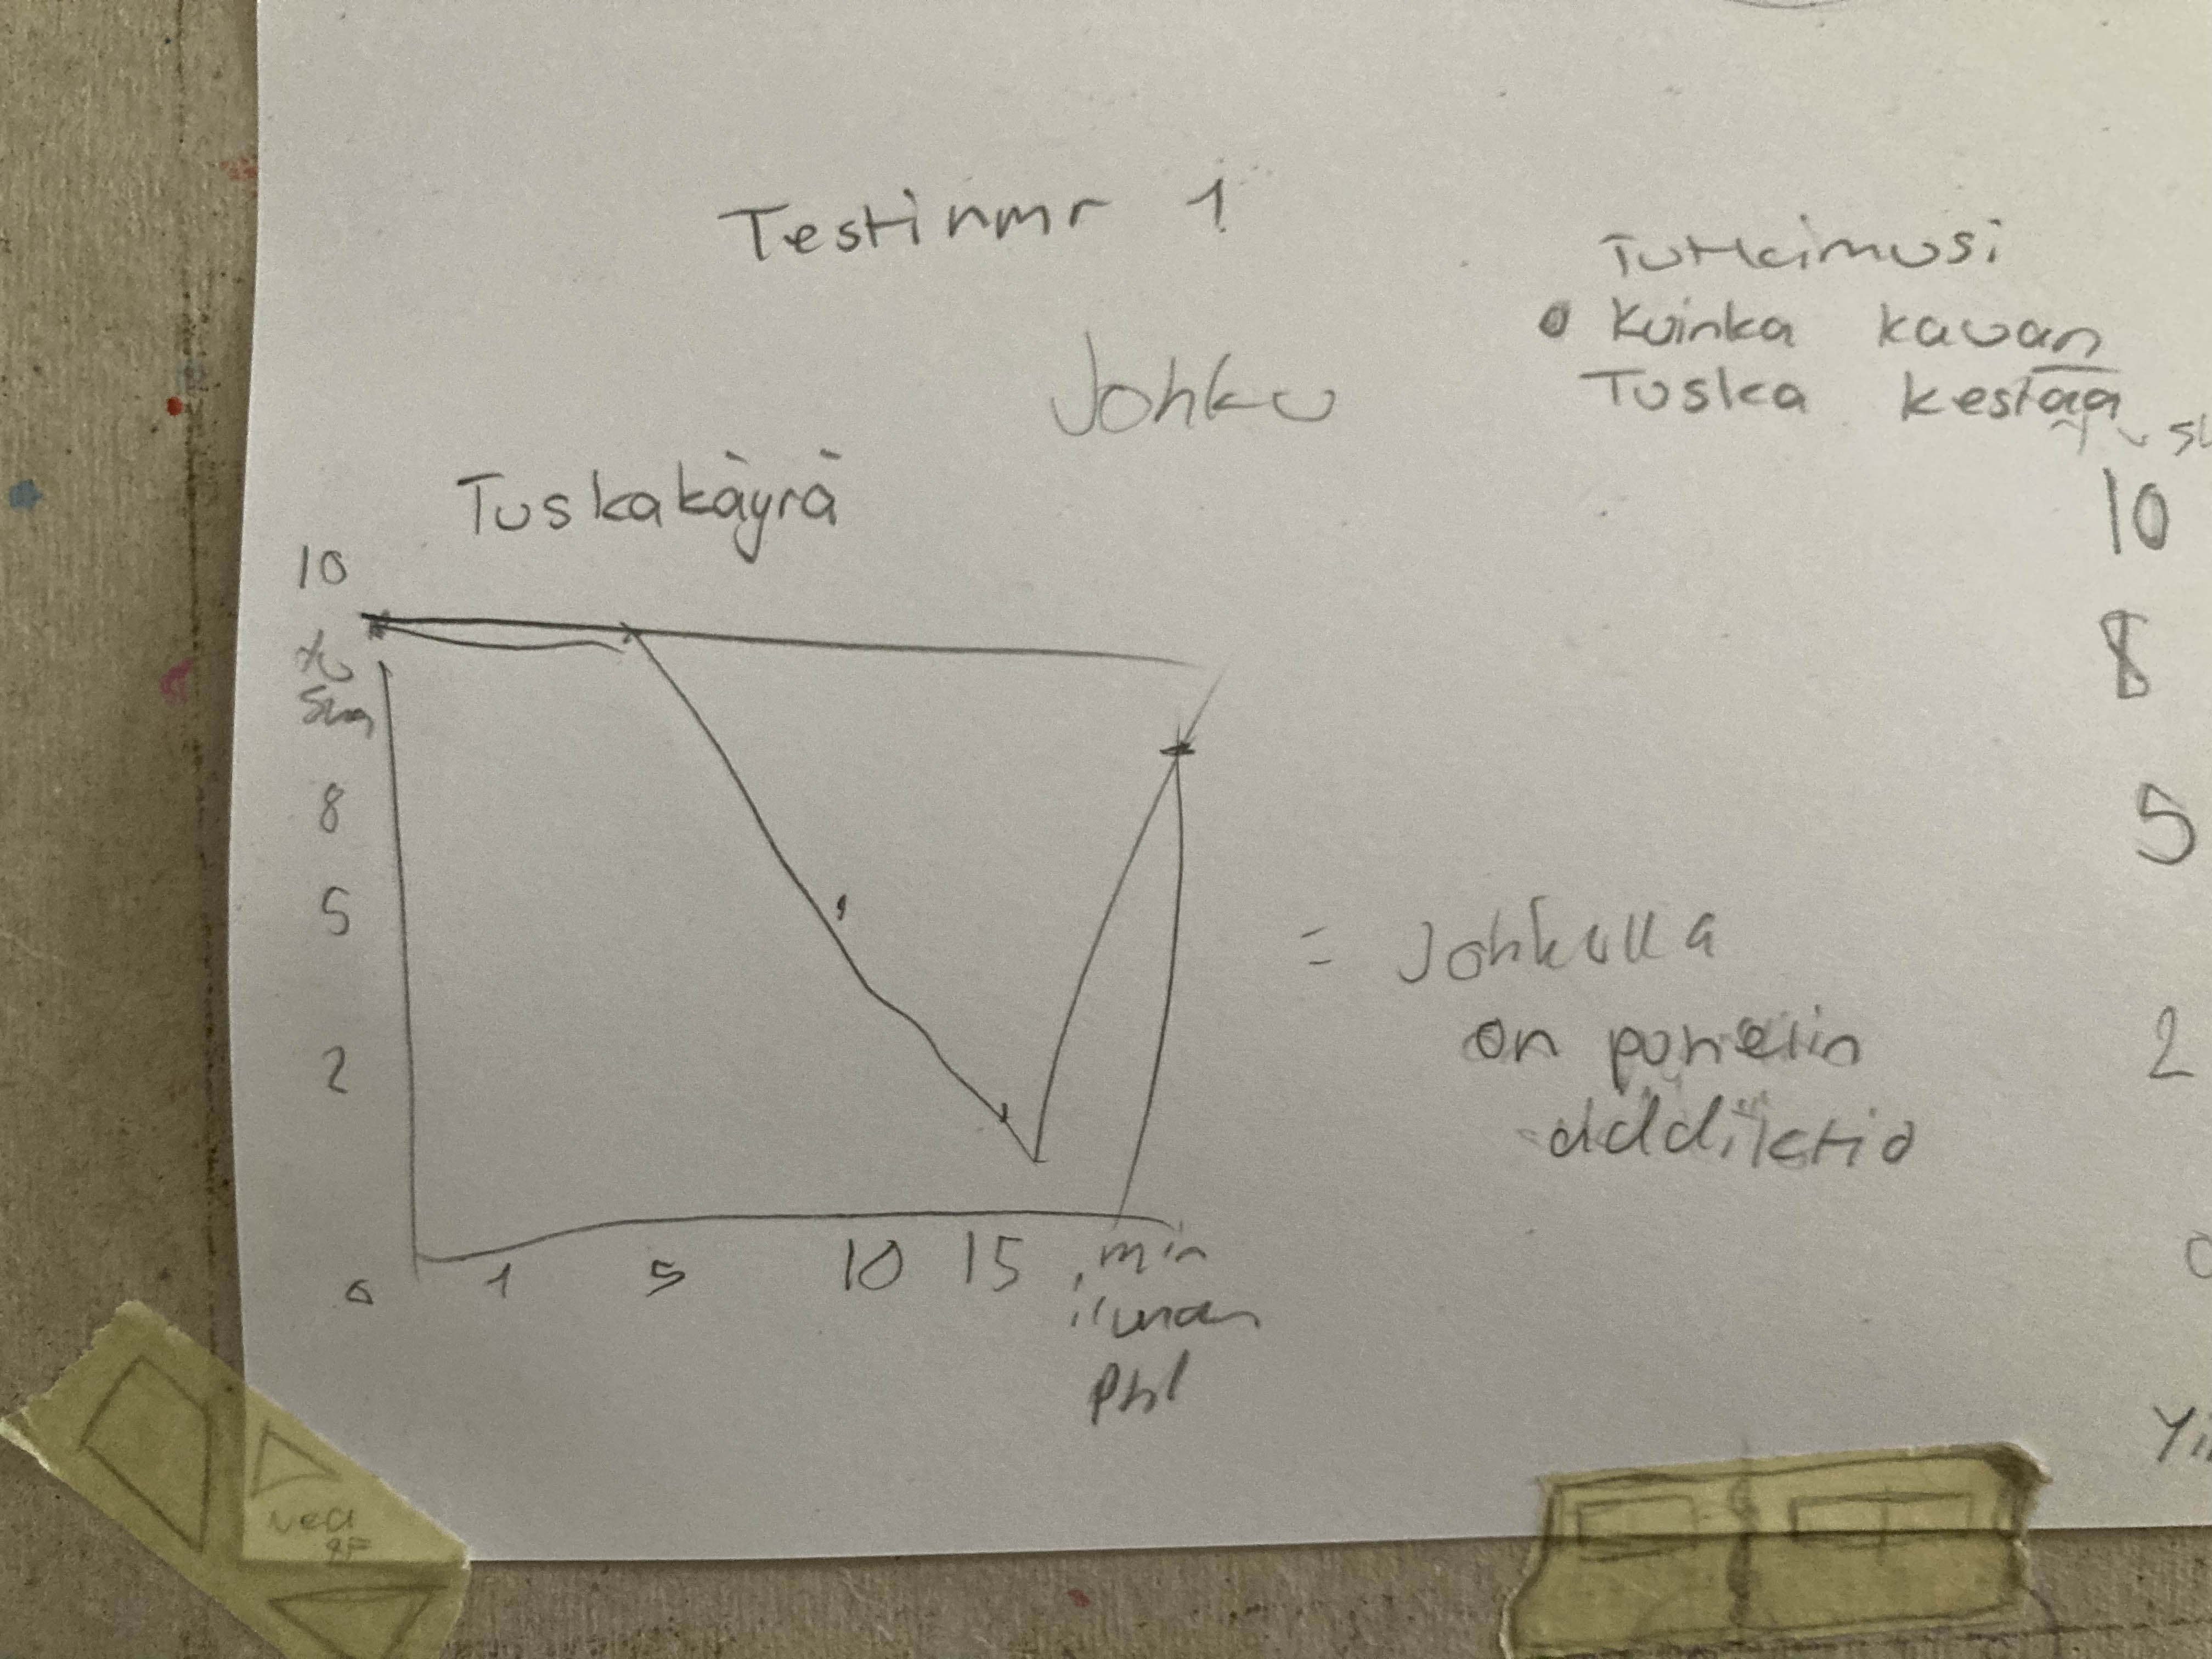 Testinmr 1
Johku
Tutkimusi
• Kuinka kauan
Tuska kestää
Tuskakäyrä
10
8
5
2
0
1 5 10 15 min
ilman
phl
= Johkulla
on puhelin
addiktio
10
8
5
2